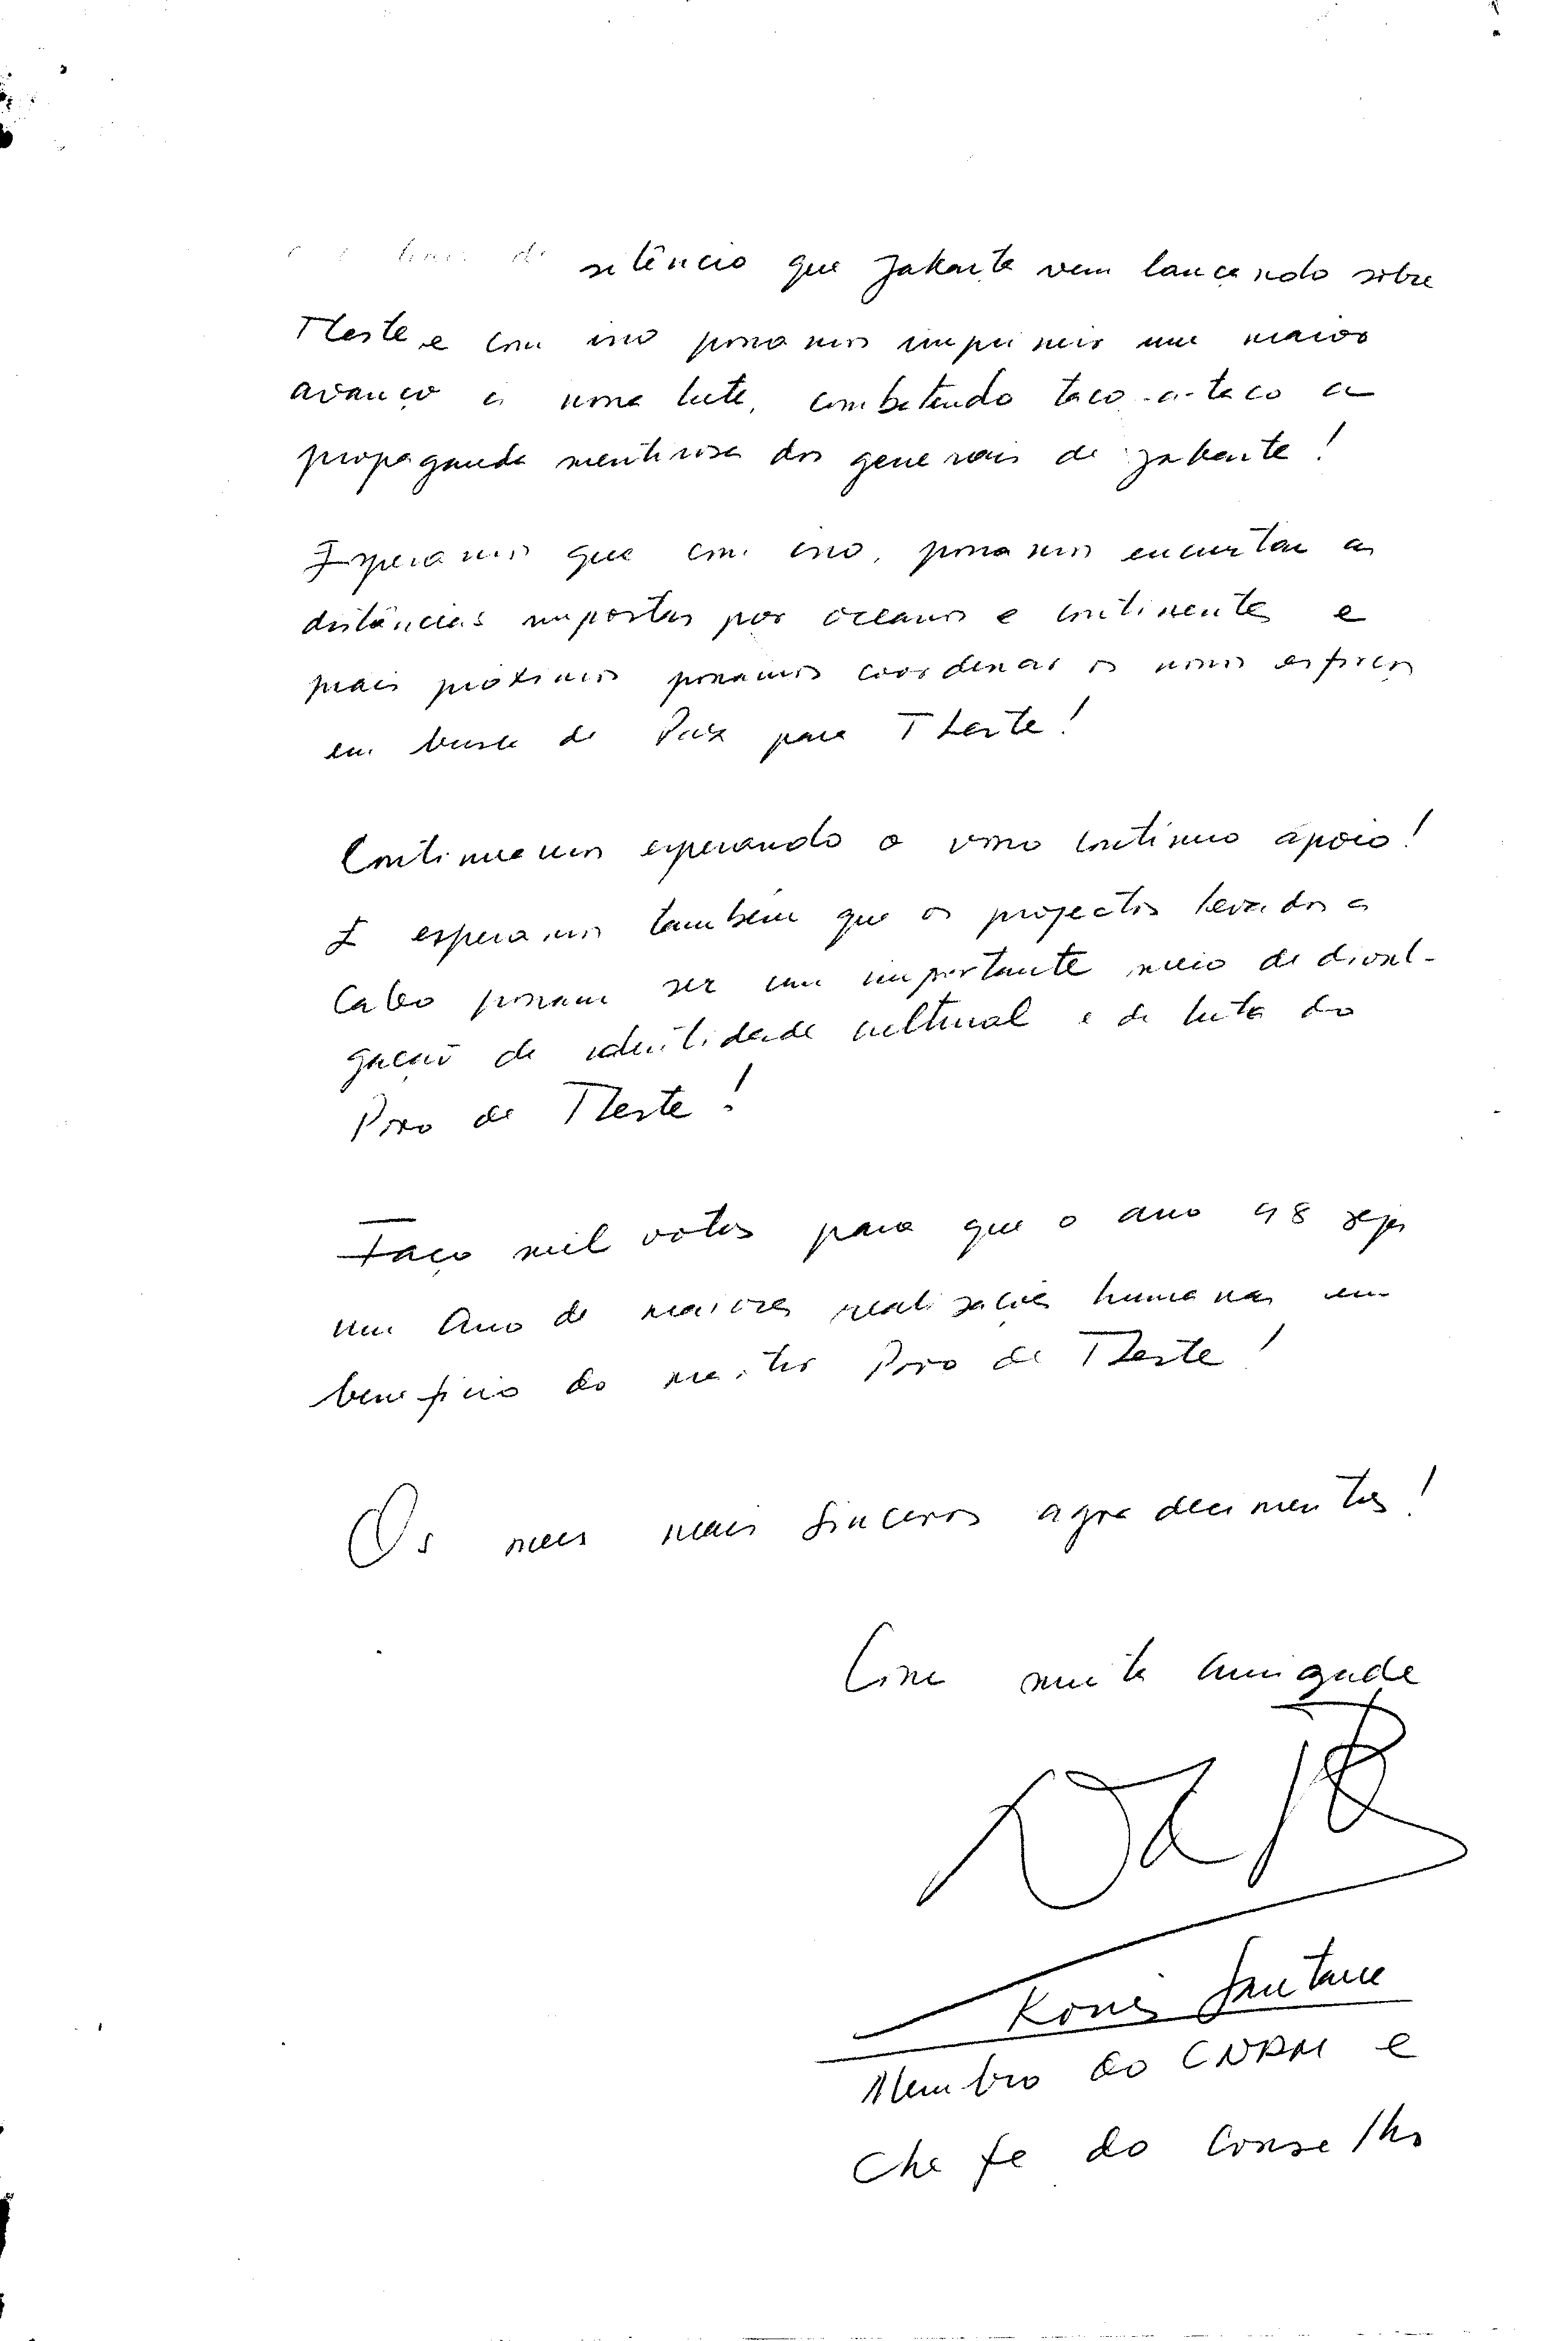 de silêncio que Jakarta vem lançando sobre
TLeste e com isso possamos imprimir um maior
avanço à nossa luta, combatendo taco-a-taco a
propaganda mentirosa dos generais de Jakarta!
Esperamos que com isso, possamos encurtar as
distâncias impostas por oceanos e continentes e
mais próximos possamos coordenar os nossos esforços
em busca de Paz para TLeste!
Continuamos esperando o vosso contínuo apoio!
E esperamos também que os projectos levados a
cabo possam ser um importante meio de divul-
gação da identidade cultural e da luta do
Povo de TLeste!
Faço mil votos para que o ano 98 seja
um Ano de maiores realizações humanas em
benefício do mártir Povo de TLeste!
Os meus mais sinceros agradecimentos!
Com muita amizade
Konis Santana
Membro do CNRM e
Chefe do Conselho